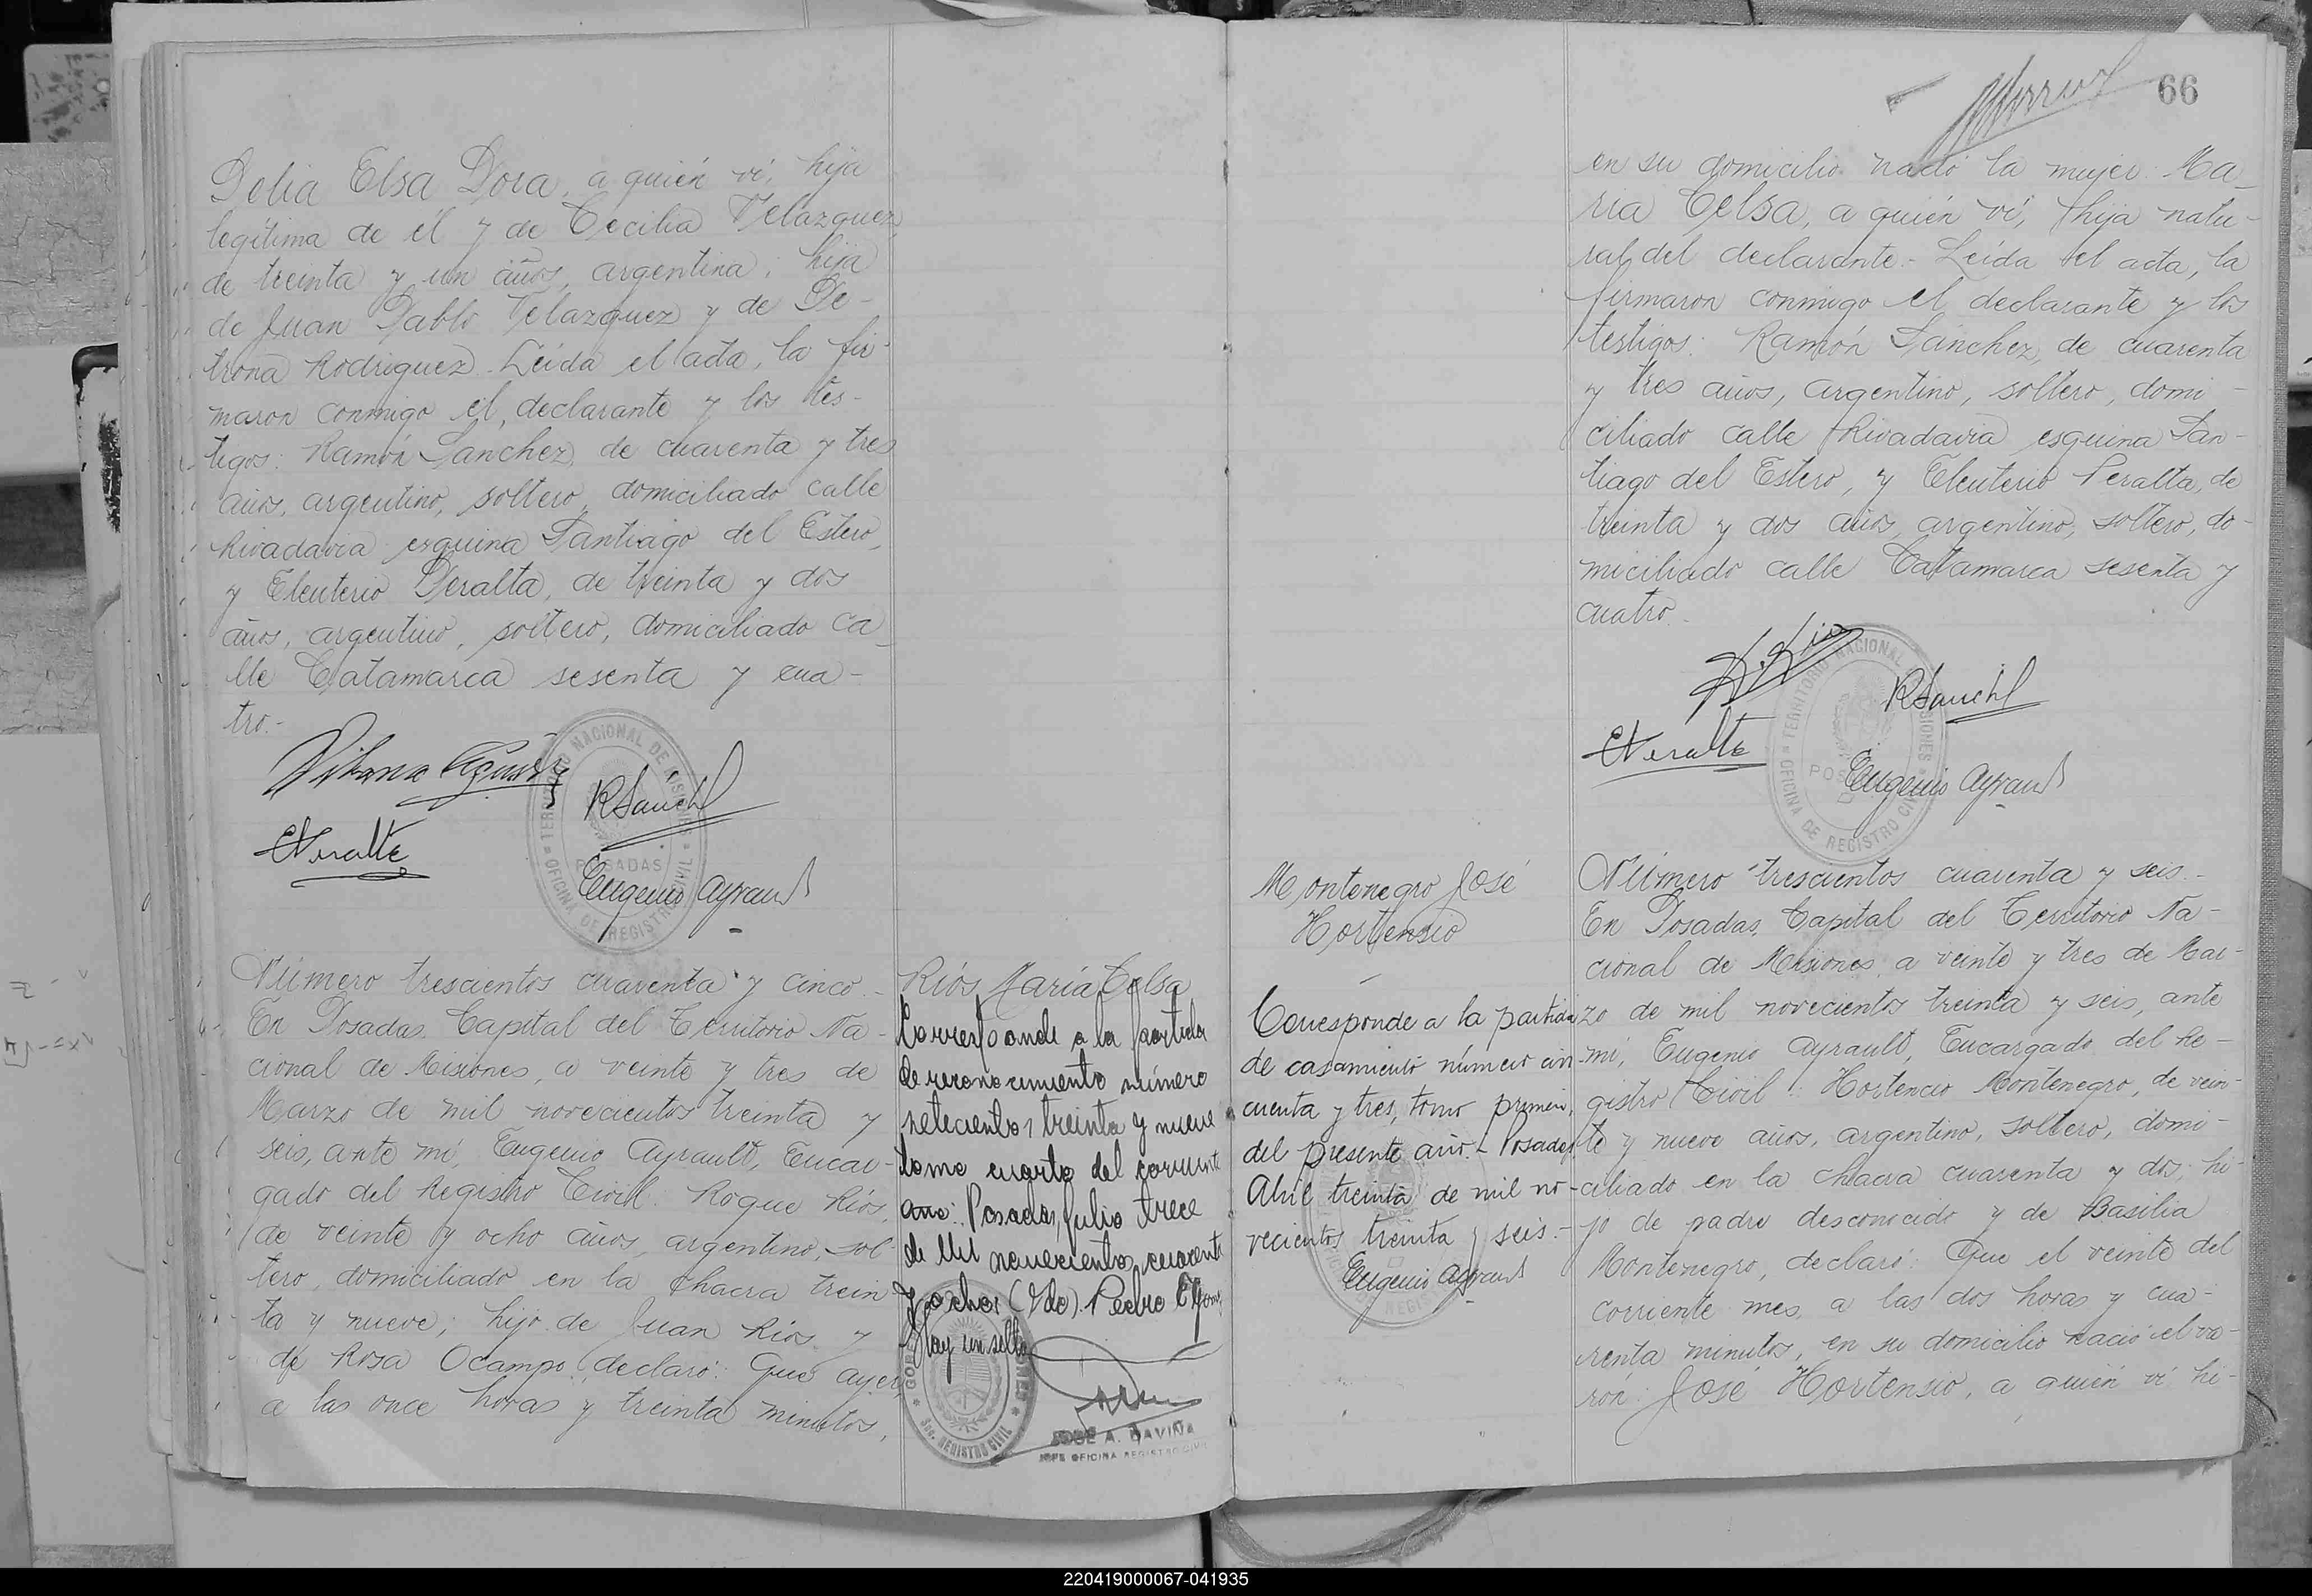 Delia Elsa Dora, a quién ví, hija
legítima de él y de Cecilia Velazquez,
de treinta y un años, argentina, hija
de Juan Pablo Velazquez y de Pe-
trona Rodriguez. Leída el acta, la fir-
maron conmigo el declarante y los tes-
tigos: Ramón Sanchez, de cuarenta y tres
años, argentino, soltero, domiciliado calle
Rivadavia esquina Santiago del Estero,
y Eleuterio Peralta, de treinta y dos
años, argentino, soltero, domiciliado ca-
lle Catamarca sesenta y cua-
tro.-
TERRITORIO NACIONAL DE MISIONES
POSADAS
OFICINA DE REGISTRO CIVIL
RSanch
EPeralta
Eugenio Ayrault
Número trescientos cuarenta y cinco.-
En Posadas, Capital del Territorio Na-
cional de Misiones, a veinte y tres de
Marzo de mil novecientos treinta y
seis, ante mí, Eugenio Ayrault, Encar-
gado del Registro Civil: Roque Ríos,
de veinte y ocho años, argentino, sol-
tero, domiciliado en la chacra trein-
ta y nueve; hijo de Juan Ríos y
de Rosa Ocampo, declaró: Que ayer,
a las once horas y treinta minutos,
Ríos María Celsa
Corresponde a la partida
de reconocimiento número
setecientos treinta y nueve
tomo cuarto del corriente
año: Posadas, Julio trece
de Mil novecientos cuarenta
y ocho. (Fdo). Pedro
Hay un sello
SEC. REGISTRO CIVIL
JOSE A. DAVIÑA
JEFE OFICINA REGISTRO CIVIL
66
en su domicilio nació la mujer: Ma-
ría Celsa, a quién ví, hija natu-
ral del declarante.- Leída el acta, la
firmaron conmigo el declarante y los
testigos: Ramón Sánchez, de cuarenta
y tres años, argentino, soltero, domi-
ciliado calle Rivadavia esquina San-
tiago del Estero, y Eleuterio Peralta, de
treinta y dos años, argentino, soltero, do-
miciliado calle Catamarca sesenta y
cuatro.-
TERRITORIO NACIONAL DE MISIONES
POSADAS
OFICINA DE REGISTRO CIVIL
RSanch
EPeralta
Eugenio Ayrault
Montenegro José
Hortensio
Corresponde a la partida
de casamiento número cin-
cuenta y tres, tomo primero,
del presente año.- Posadas,
Abril treinta de mil no-
vecientos treinta y seis.-
Eugenio Ayrault
Número trescientos cuarenta y seis.-
En Posadas, Capital del Territorio Na-
cional de Misiones, a veinte y tres de Mar-
zo de mil novecientos treinta y seis, ante
mí, Eugenio Ayrault, Encargado del Re-
gistro Civil: Hortencio Montenegro, de vein-
te y nueve años, argentino, soltero, domi-
ciliado en la chacra cuarenta y dos; hi-
jo de padre desconocido y de Basilia
Montenegro, declaró: Que el veinte del
corriente mes, a las dos horas y cua-
renta minutos, en su domicilio nació el va-
rón: José Hortensio, a quién ví, hi-
220419000067-041935